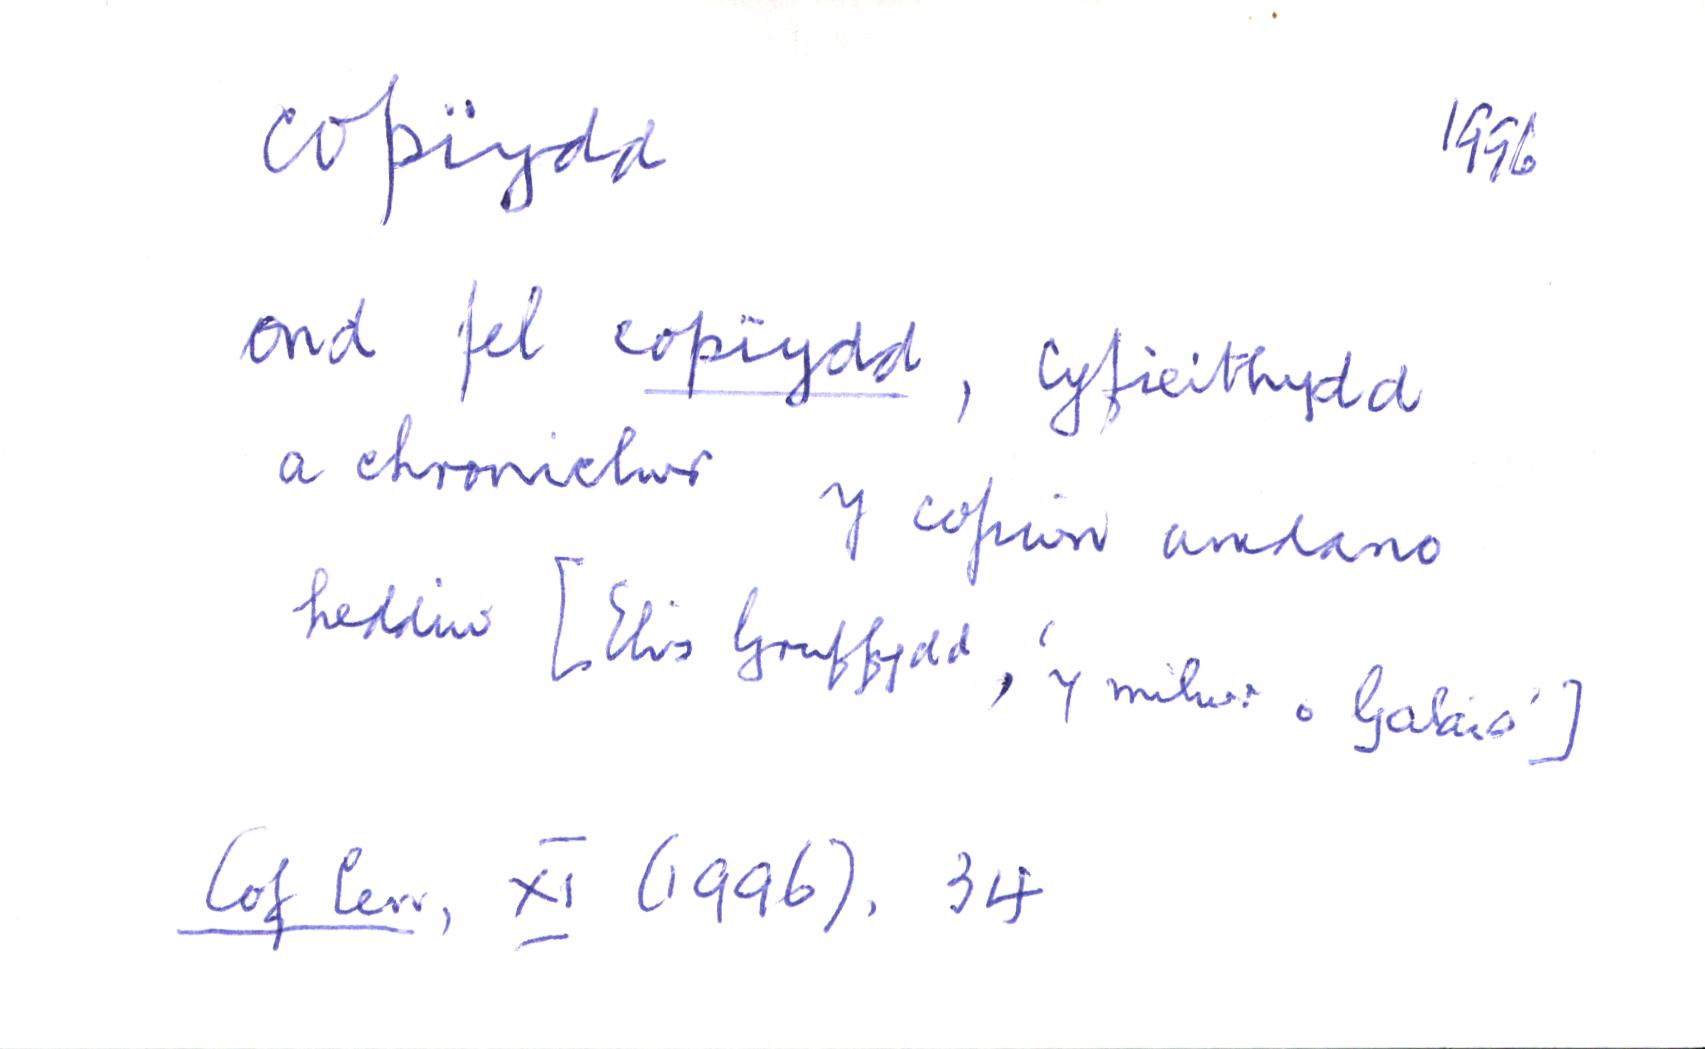 copïydd 1996
ond fel copïydd, cyfieithydd
a chroniclwr y cofiwn amdano
heddiw [Elis Gruffydd, 'y milwr o Galais']
Cof Cen, XI (1996). 34